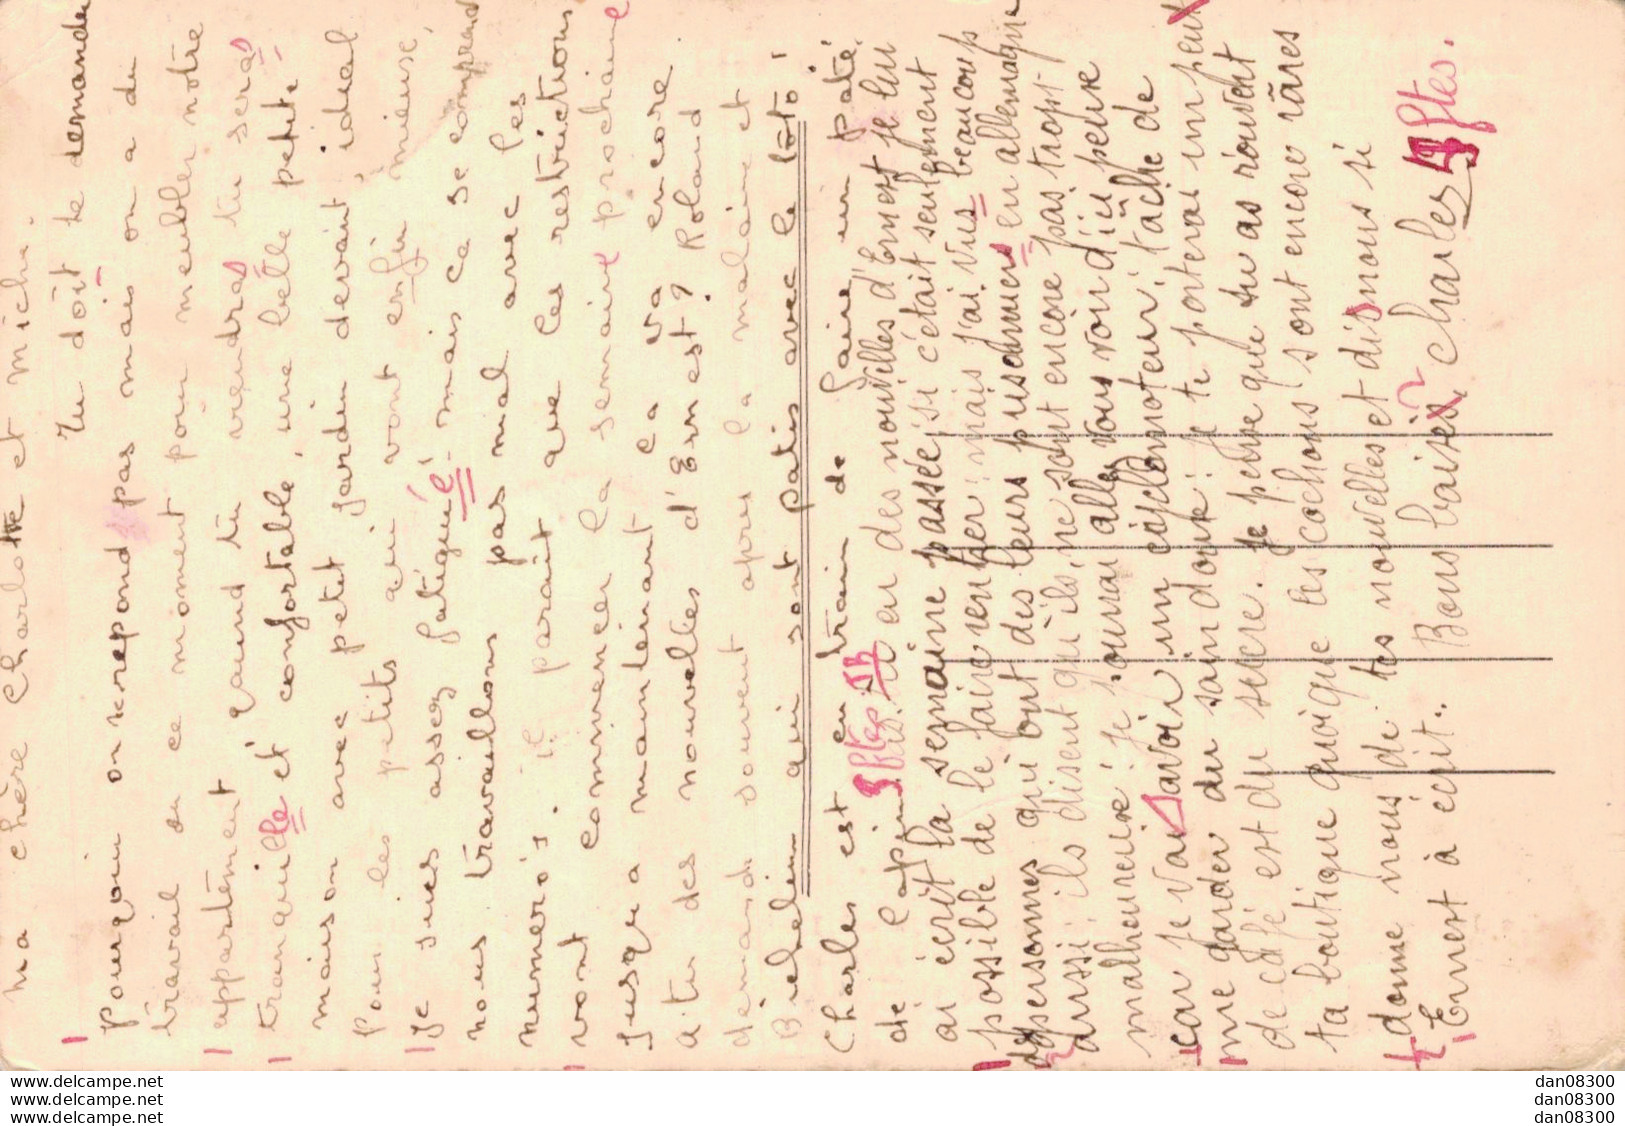 ma chère Charlotte et michi.
Tu doit te demander
pourquoi on te repond pas mais on a du
travail en ce moment pour meubler notre
appartement quand tu viendras tu seras
tranquille et confortable, une belle petite
maison avec petit jardin devant, ideal
pour les petits qui vont enfin mieuse,
je suis assez fatigué mais ca se comprend
nous travaillons pas mal avec les
numero's. il parait que les restrictions
vont commencer la semaine prochaine
jusqu'a maintenant ca va encore
a tu des nouvelles d'Ernest? Roland
demande souvent apres la malaine et
Bichelin qui sont patis avec le lôtô!
Charles est en train de faire un paté
de lapin 3 ftes JB
ici en des nouvelles d'Ernest je lui
ai écrit la semaine passée, si c'était seulement
possible de le faire rentrer! mais j'ai vus beaucoup
de personnes qui ont des leurs prisonniers en allemagne
aussi: ils disent qu'ils ne sont encore pas trop
malheureuse! je pourrai aller vous voir d'ici peuse
car je vais avoir un ciyclomoteur! tâche de
me garder du saindouse! je te porterai un peut
de café et du sucre. Je pense que tu as rouvert
ta boutique quoique les cochons sont encore râres
donne nous de tes nouvelles et dis nous si
Ernest à écrit.. Bons baisés. Charles 13 ftes.
dan08300
dan08300
dan08300
www.delcampe.net
www.delcampe.net
www.delcampe.net